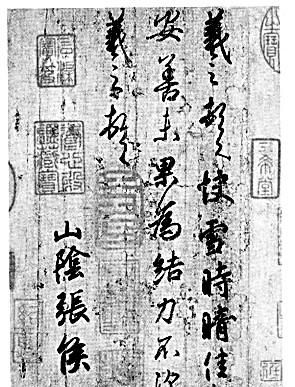 羲之頓首快雪時晴佳
安善未果為結力不次
羲之頓首
山陰張侯
三希堂